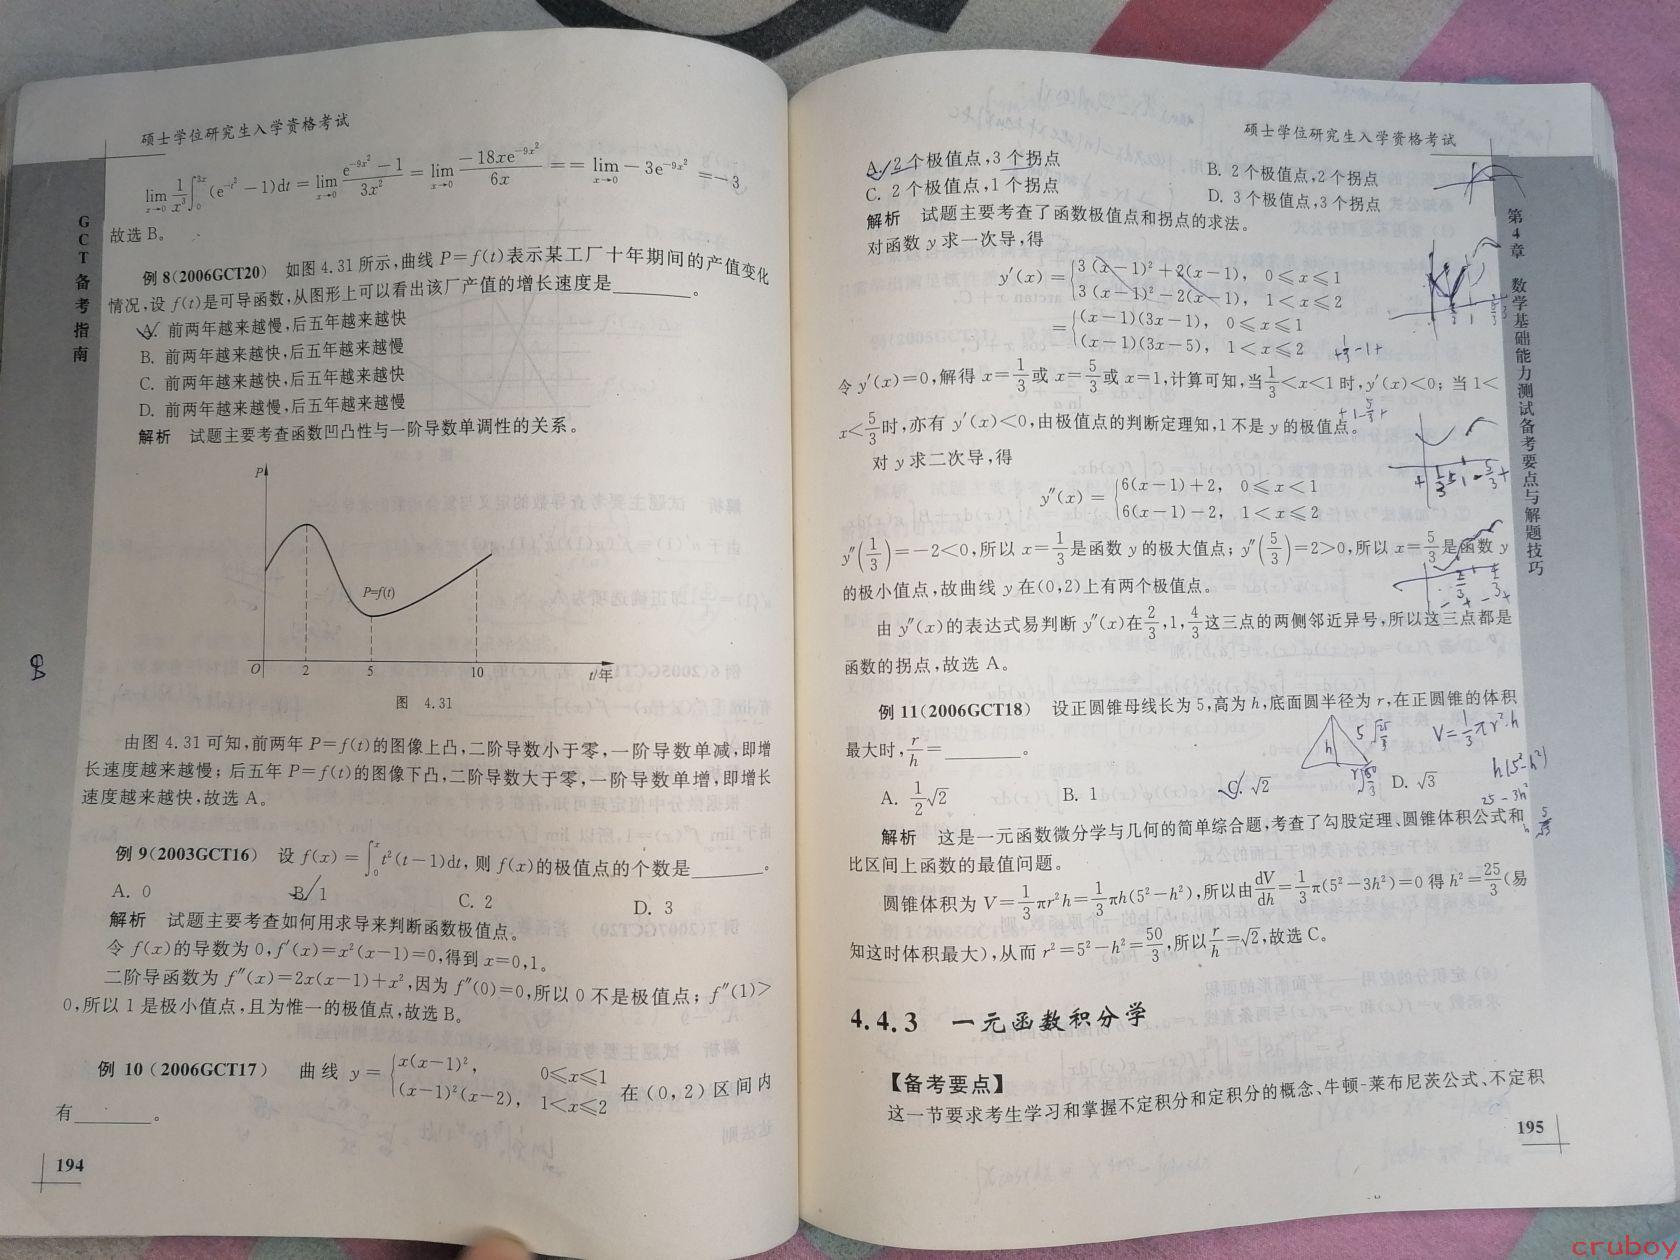 硕士学位研究生入学资格考试
GCT备考指南
lim_{x→0} 1/x³ ∫_0^{3x} (e^{-t²}-1)dt = lim_{x→0} (e^{-9x²}-1)/(3x²) = lim_{x→0} (-18xe^{-9x²})/(6x) == lim_{x→0} -3e^{-9x²} =-3
故选 B。
例 8(2006GCT20) 如图 4.31 所示,曲线 P=f(t)表示某工厂十年期间的产值变化
情况,设 f(t)是可导函数,从图形上可以看出该厂产值的增长速度是________。
A. 前两年越来越慢,后五年越来越快
B. 前两年越来越快,后五年越来越慢
C. 前两年越来越快,后五年越来越快
D. 前两年越来越慢,后五年越来越慢
解析 试题主要考查函数凹凸性与一阶导数单调性的关系。
P
P=f(t)
O 2 5 10 t/年
图 4.31
由图 4.31 可知,前两年 P=f(t)的图像上凸,二阶导数小于零,一阶导数单减,即增
长速度越来越慢;后五年 P=f(t)的图像下凸,二阶导数大于零,一阶导数单增,即增长
速度越来越快,故选 A。
例 9(2003GCT16) 设 f(x)=∫_0^x t²(t-1)dt,则 f(x)的极值点的个数是________。
A. 0 B. 1 C. 2 D. 3
解析 试题主要考查如何用求导来判断函数极值点。
令 f(x)的导数为 0,f′(x)=x²(x-1)=0,得到 x=0,1。
二阶导函数为 f″(x)=2x(x-1)+x²,因为 f″(0)=0,所以 0 不是极值点;f″(1)>
0,所以 1 是极小值点,且为惟一的极值点,故选 B。
例 10(2006GCT17) 曲线 y={x(x-1)², 0≤x≤1
(x-1)²(x-2), 1<x≤2 在(0,2)区间内
有________。
194
硕士学位研究生入学资格考试
第4章 数学基础能力测试备考要点与解题技巧
A. 2 个极值点,3 个拐点 B. 2 个极值点,2 个拐点
C. 2 个极值点,1 个拐点 D. 3 个极值点,3 个拐点
解析 试题主要考查了函数极值点和拐点的求法。
对函数 y 求一次导,得
y′(x)={3(x-1)²+2(x-1), 0≤x≤1
3(x-1)²-2(x-1), 1<x≤2
={(x-1)(3x-1), 0≤x≤1
(x-1)(3x-5), 1<x≤2
令 y′(x)=0,解得 x=1/3或 x=5/3或 x=1,计算可知,当1/3<x<1 时,y′(x)<0;当 1<
x<5/3时,亦有 y′(x)<0,由极值点的判断定理知,1 不是 y 的极值点。
对 y 求二次导,得
y″(x)={6(x-1)+2, 0≤x<1
6(x-1)-2, 1<x≤2
y″(1/3)=-2<0,所以 x=1/3是函数 y 的极大值点;y″(5/3)=2>0,所以 x=5/3是函数 y
的极小值点,故曲线 y 在(0,2)上有两个极值点。
由 y″(x)的表达式易判断 y″(x)在2/3,1,4/3这三点的两侧邻近异号,所以这三点都是
函数的拐点,故选 A。
例 11(2006GCT18) 设正圆锥母线长为 5,高为 h,底面圆半径为 r,在正圆锥的体积
最大时,r/h=________。
V=1/3πr²·h
h(5²-h²)
25-3h²
A. 1/2√2 B. 1 C. √2 D. √3
解析 这是一元函数微分学与几何的简单综合题,考查了勾股定理、圆锥体积公式和
比区间上函数的最值问题。
圆锥体积为 V=1/3πr²h=1/3πh(5²-h²),所以由dV/dh=1/3π(5²-3h²)=0 得 h²=25/3(易
知这时体积最大),从而 r²=5²-h²=50/3,所以r/h=√2,故选 C。
4.4.3 一元函数积分学
【备考要点】
这一节要求考生学习和掌握不定积分和定积分的概念、牛顿-莱布尼茨公式、不定积
195
cruboy